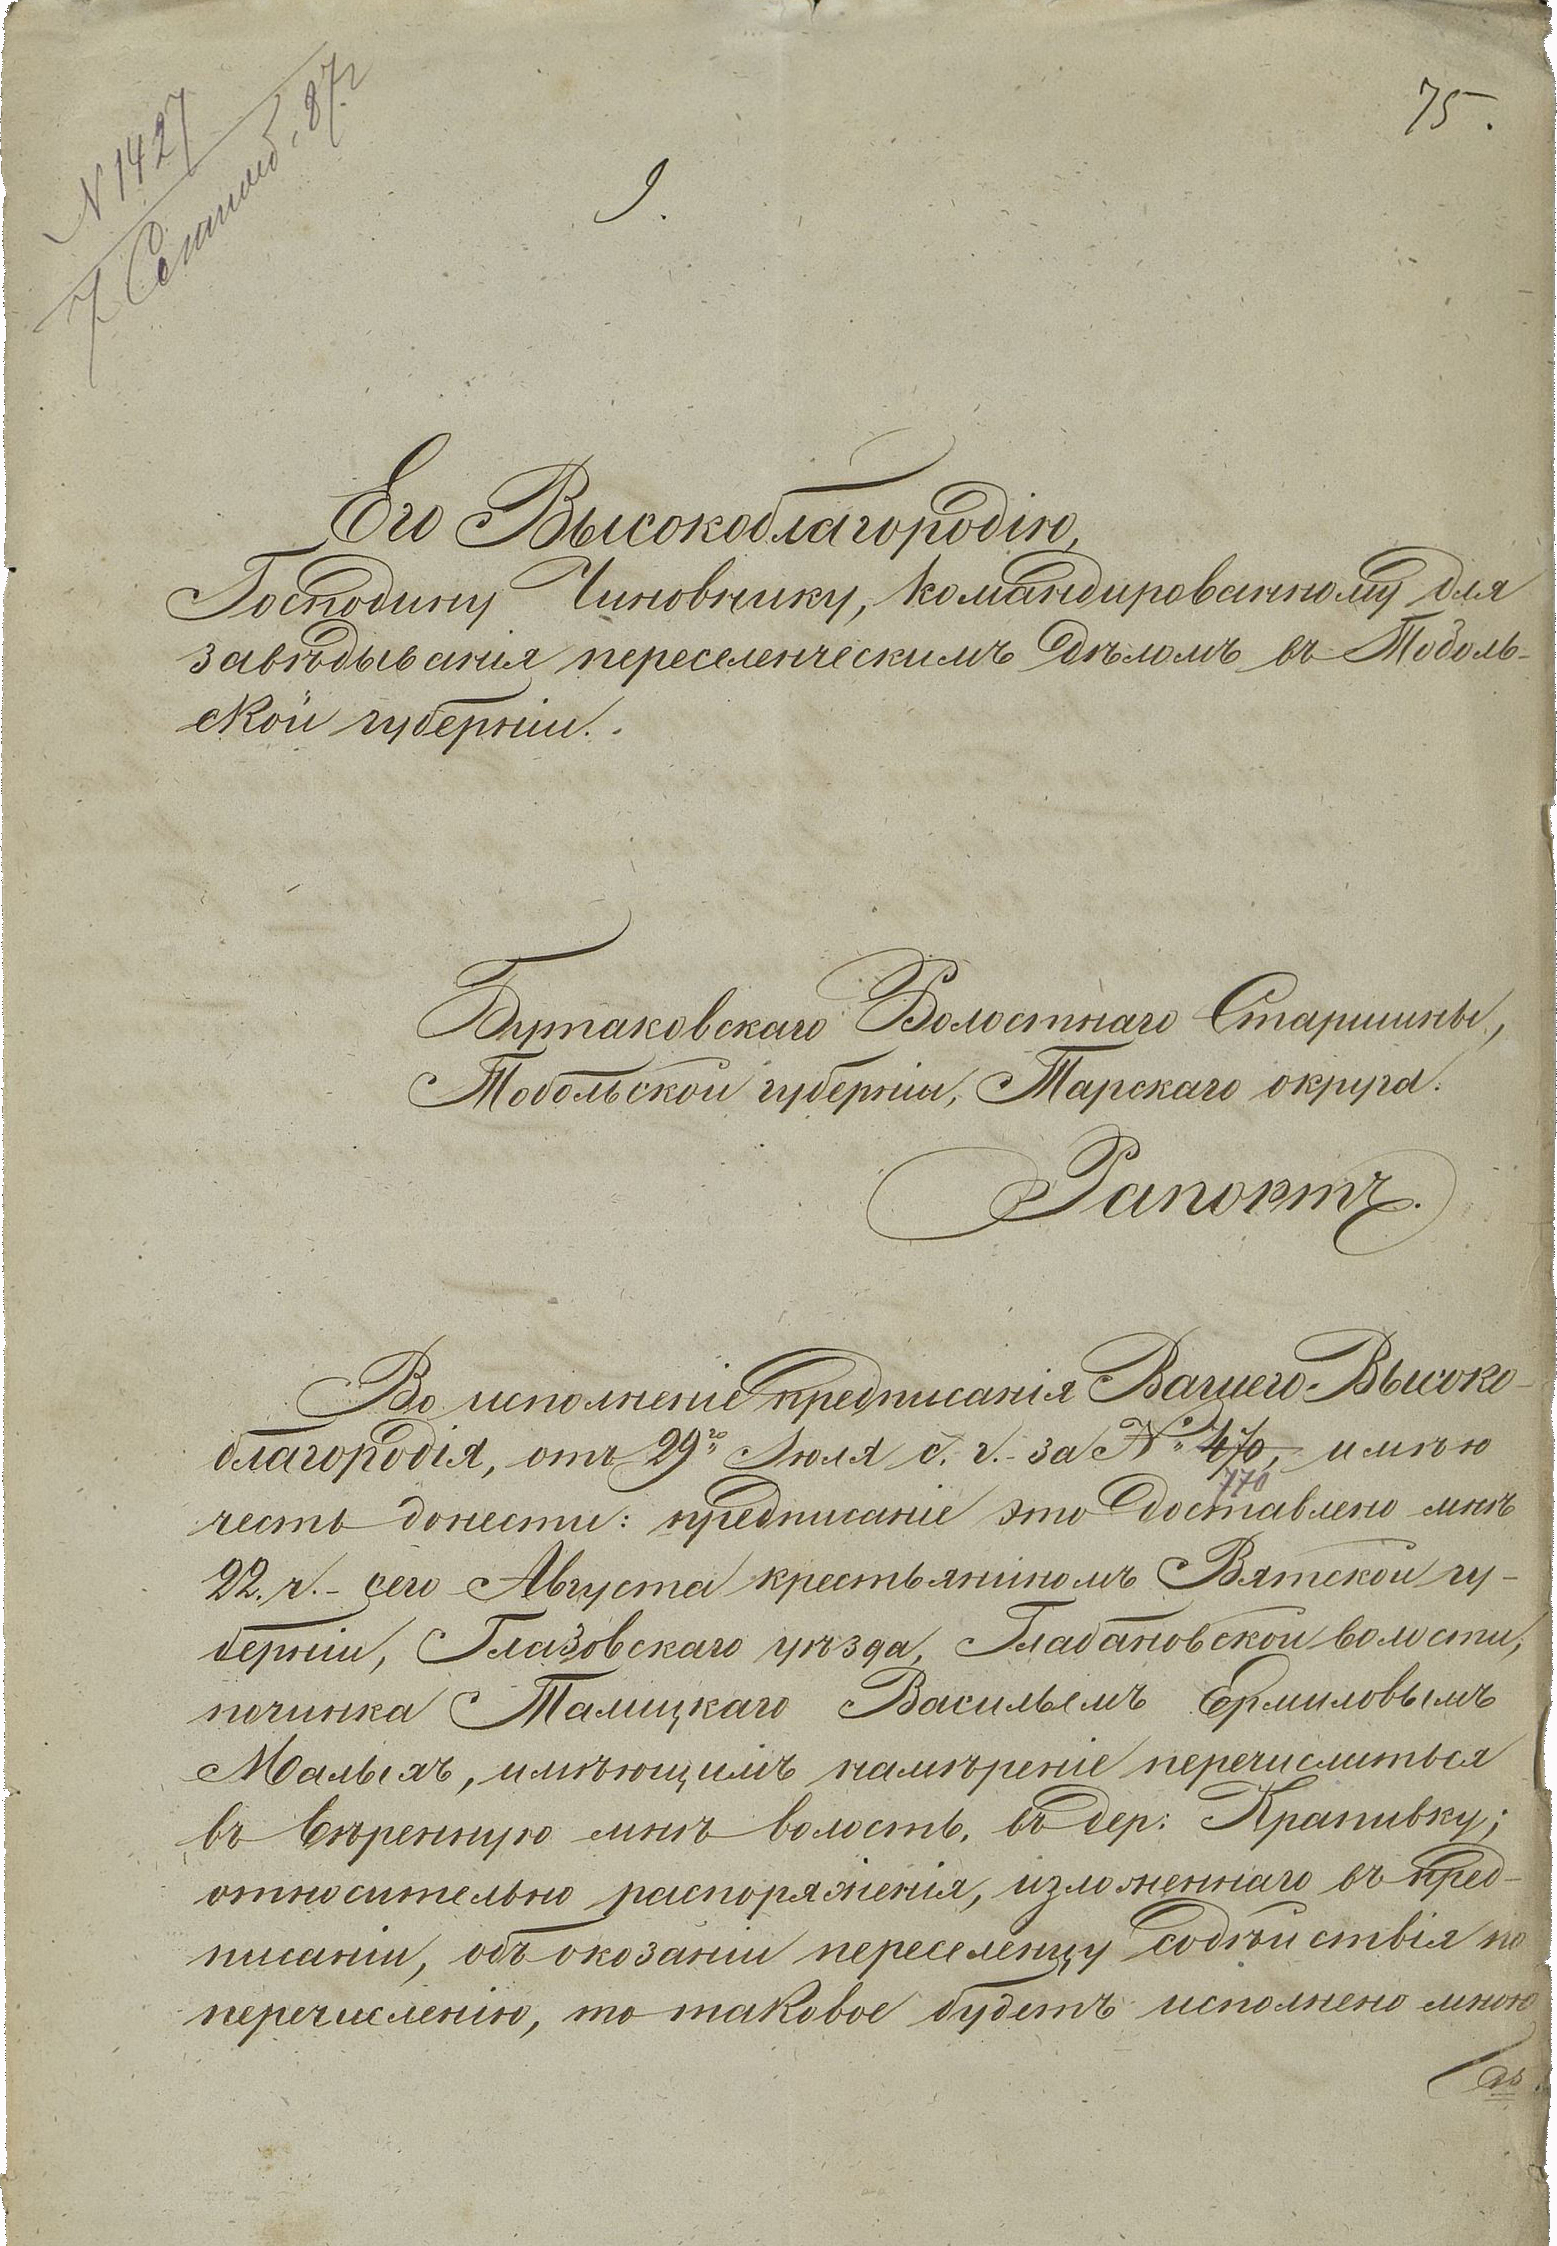 75.
N 1427
7 Сентяб. 87 г
9.
Его Высокоблагородію,
Господину Чиновнику, командированному для
завѣдыванія переселенческимъ дѣломъ въ Тоболь-
ской губерніи.
Бутаковскаго Волостнаго Старшины,
Тобольской губерніи, Тарскаго округа.
Рапортъ.
Во исполненіе предписанія Вашего Высоко-
благородія, отъ 29го Іюля с. г. за № 470, имѣю
770
честь донести: предписаніе это доставлено мнѣ
22. ч. сего Августа крестьяниномъ Вятской гу-
берніи, Глазовскаго уѣзда, Гладановской волости,
починка Талицкаго Васильемъ Ермиловымъ
Малыхъ, имѣющимъ намѣреніе перечислиться
въ ввѣренную мнѣ волость, въ дер: Крапивку;
относительно распоряженія, изложеннаго въ пред-
писаніи, объ оказаніи переселенцу содѣйствія по
перечисленію, то таковое будетъ исполнено мною